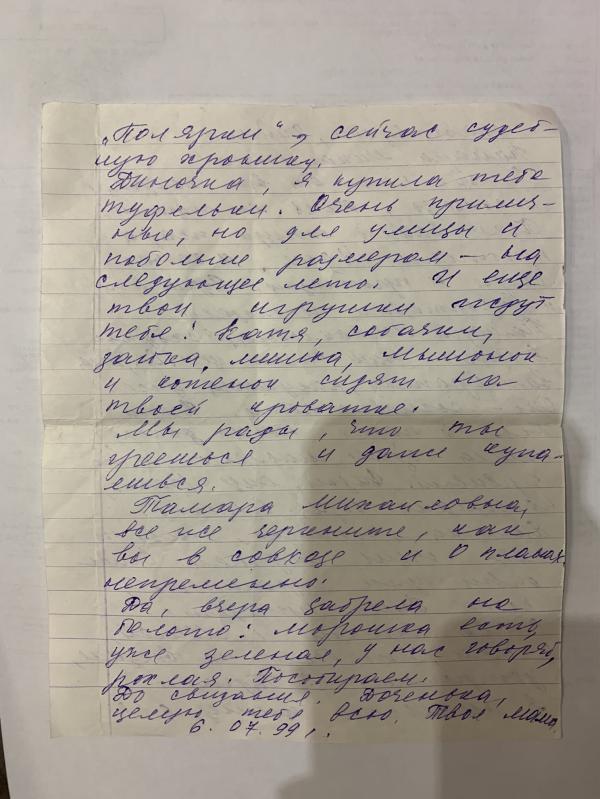 „Полярки“, сейчас судеб-
ную хронику.
Диночка, я купила тебе
туфельки. Очень прилич-
ные, но для улицы и
побольше размером – на
следующее лето. И еще
твои игрушки ждут
тебя! Катя, собачки,
зайка, мишка, мышонок
и котенок сидят на
твоей кроватке.
Мы рады, что ты
греешься и даже купа-
ешься.
Тамара Михайловна,
все же черкните, как
вы в совхозе и о планах.
непременно.
Да, вчера забрела на
болото: морошка есть,
уже зеленая, у нас говорят,
рохлая. Пособираем.
До свидания. Доченька,
целую тебя всю. Твоя мама.
6. 07. 99 г.